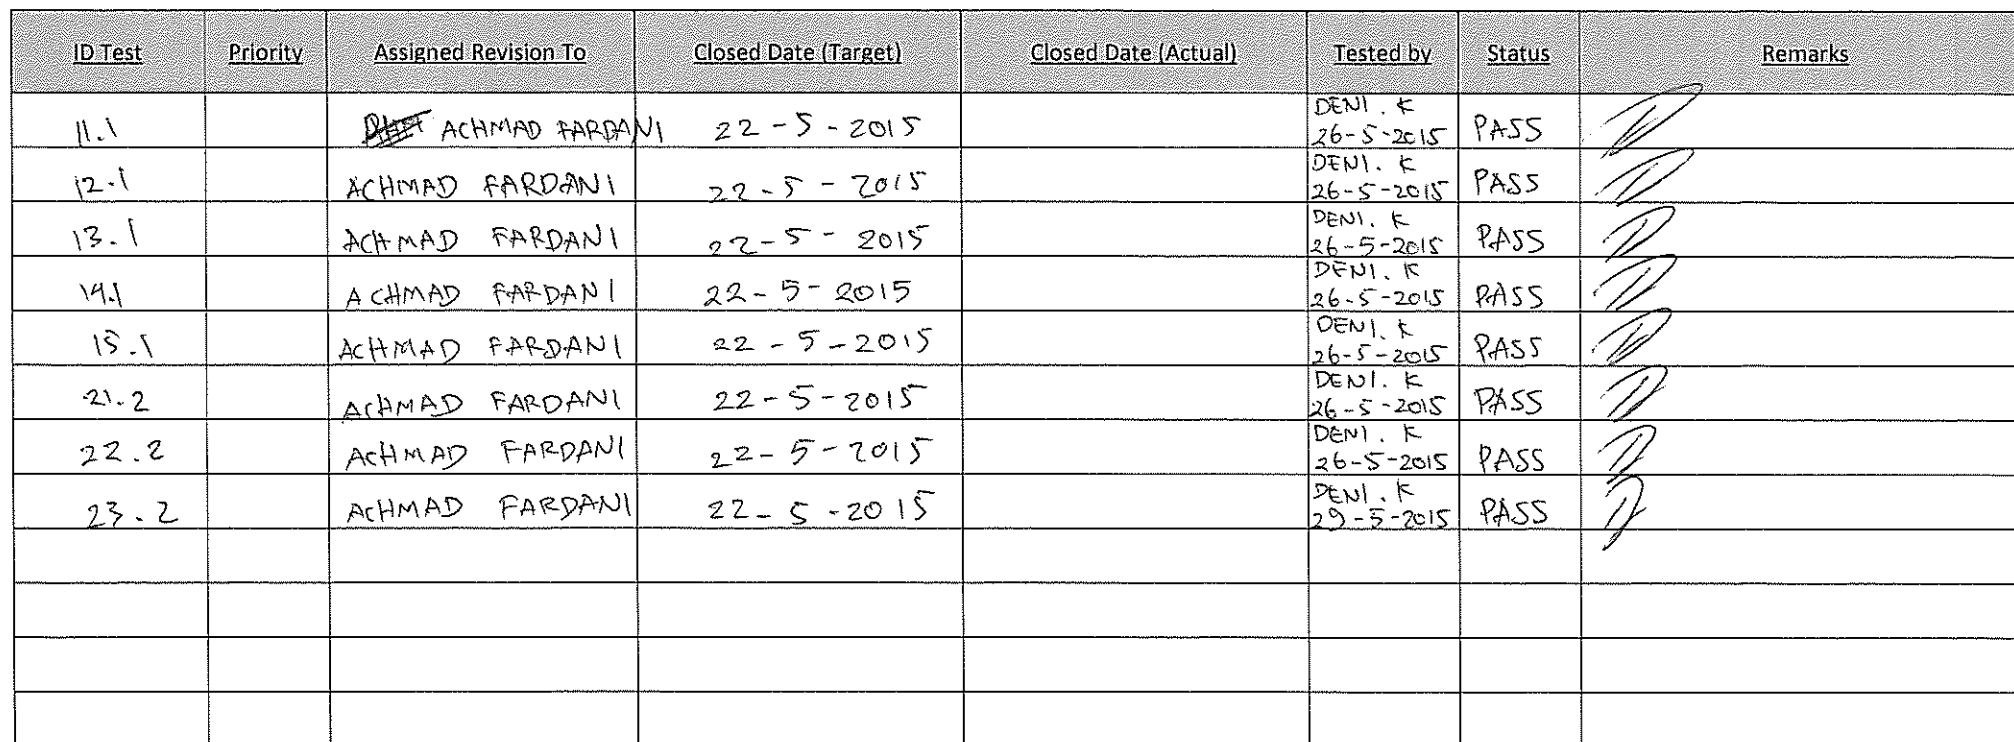 ID Test Priority Assigned Revision To Closed Date (Target) Closed Date (Actual) Tested by Status Remarks
11.1 ACHMAD FARDANI 22-5-2015 DENI. K 26-5-2015 PASS
12.1 ACHMAD FARDANI 22-5-2015 DENI. K 26-5-2015 PASS
13.1 ACHMAD FARDANI 22-5-2015 DENI. K 26-5-2015 PASS
14.1 ACHMAD FARDANI 22-5-2015 DENI. K 26-5-2015 PASS
15.1 ACHMAD FARDANI 22-5-2015 DENI. K 26-5-2015 PASS
21.2 ACHMAD FARDANI 22-5-2015 DENI. K 26-5-2015 PASS
22.2 ACHMAD FARDANI 22-5-2015 DENI. K 26-5-2015 PASS
23.2 ACHMAD FARDANI 22-5-2015 DENI. K 29-5-2015 PASS